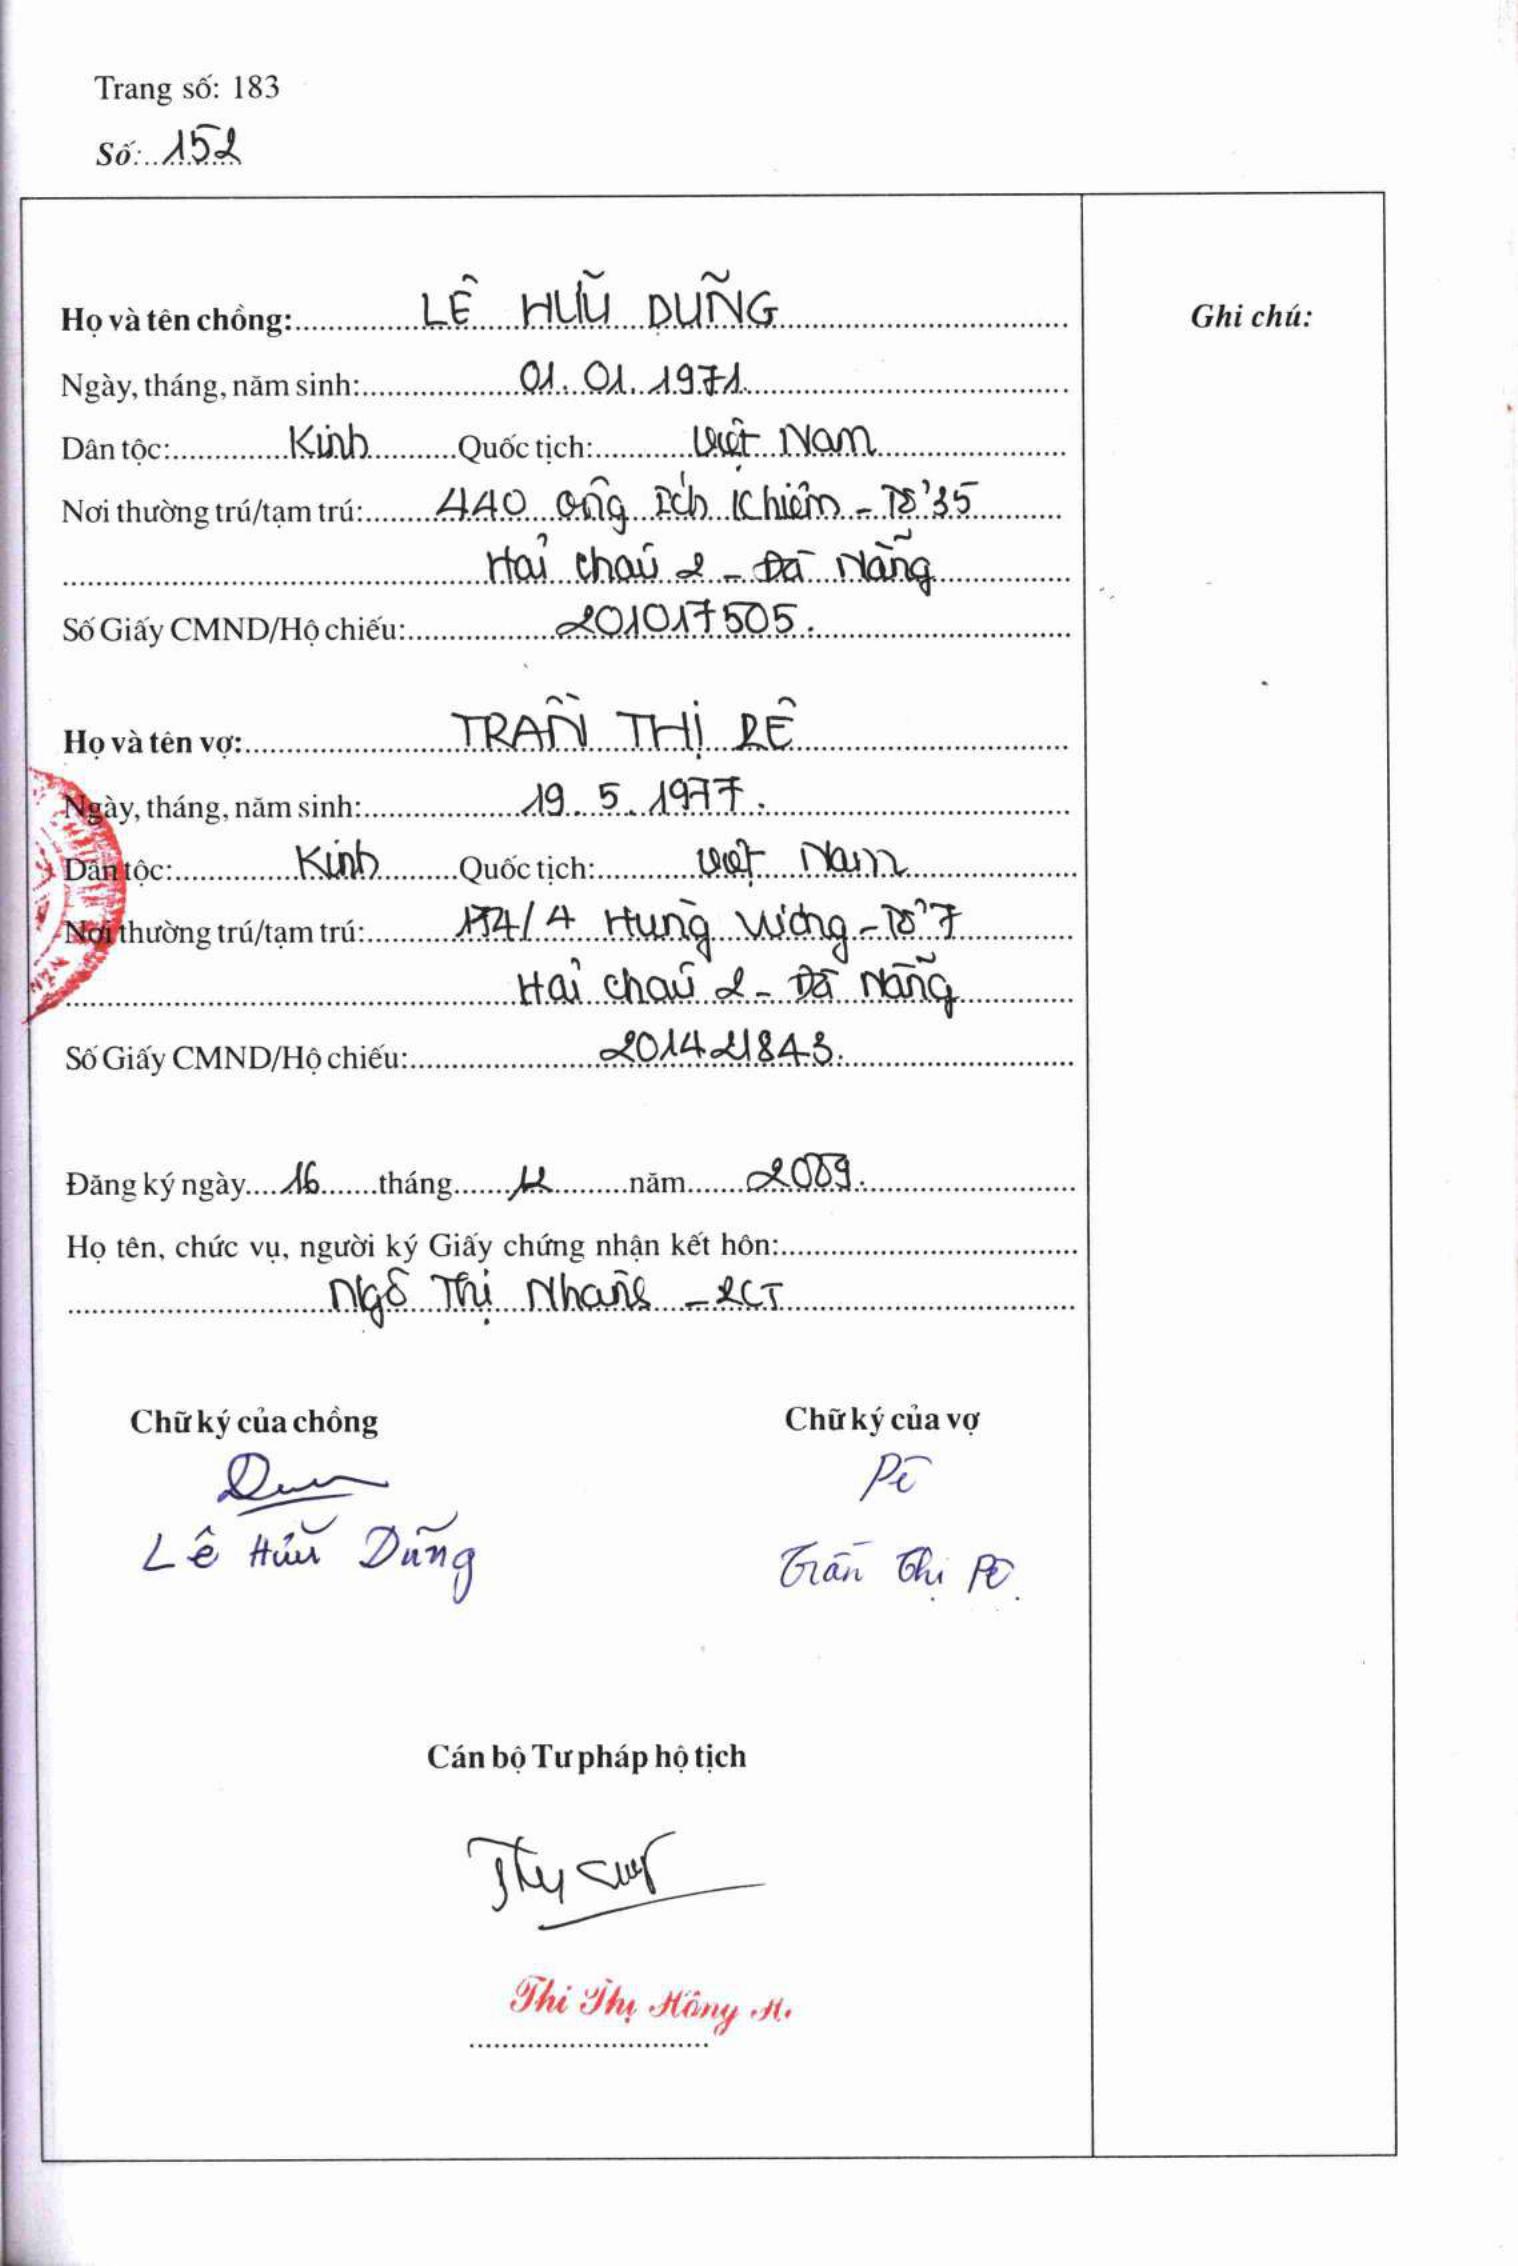 Trang số: 183
Số: 152
Họ và tên chồng: LÊ HỮU DŨNG
Ghi chú:
Ngày, tháng, năm sinh: 01.01.1971
Dân tộc: Kinh Quốc tịch: Việt Nam
Nơi thường trú/tạm trú: 440 Ông Ích Khiêm - Tổ 35
Hải Châu 2 - Đà Nẵng
Số Giấy CMND/Hộ chiếu: 201017505.
Họ và tên vợ: TRẦN THỊ RÊ
Ngày, tháng, năm sinh: 19.5.1977.
Dân tộc: Kinh Quốc tịch: Việt Nam
Nơi thường trú/tạm trú: /4 Hùng Vương - Tổ 7
Hải Châu 2 - Đà Nẵng
Số Giấy CMND/Hộ chiếu: 201421843.
Đăng ký ngày 16 tháng năm 2009.
Họ tên, chức vụ, người ký Giấy chứng nhận kết hôn:
Ngô Thị - PCT
Chữ ký của chồng Chữ ký của vợ
Lê Hữu Dũng Trần Thị Rê.
Cán bộ Tư pháp hộ tịch
Thi Thị Hồng H.